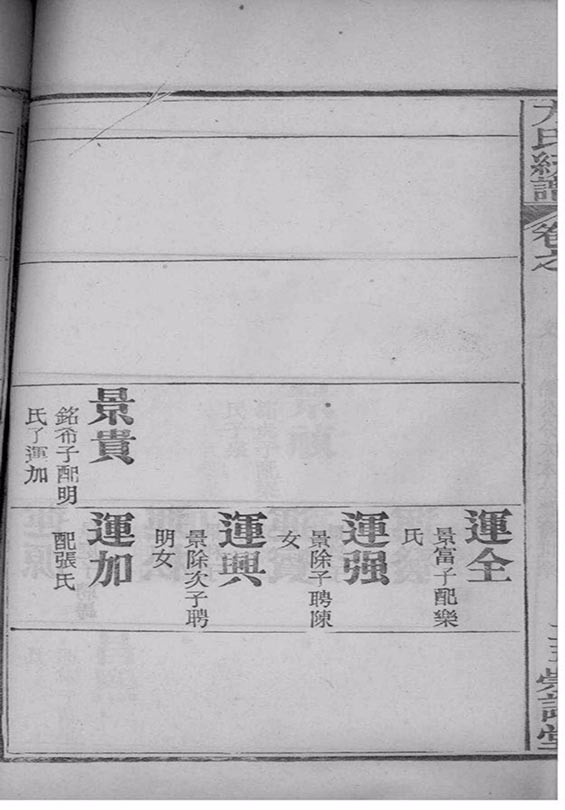 氏統譜
卷之
景貴
銘希子配明
氏子運加
運全
景富子配樂
氏
運强
景除子聘陳
女
運興
景除次子聘
明女
運加
配張氏